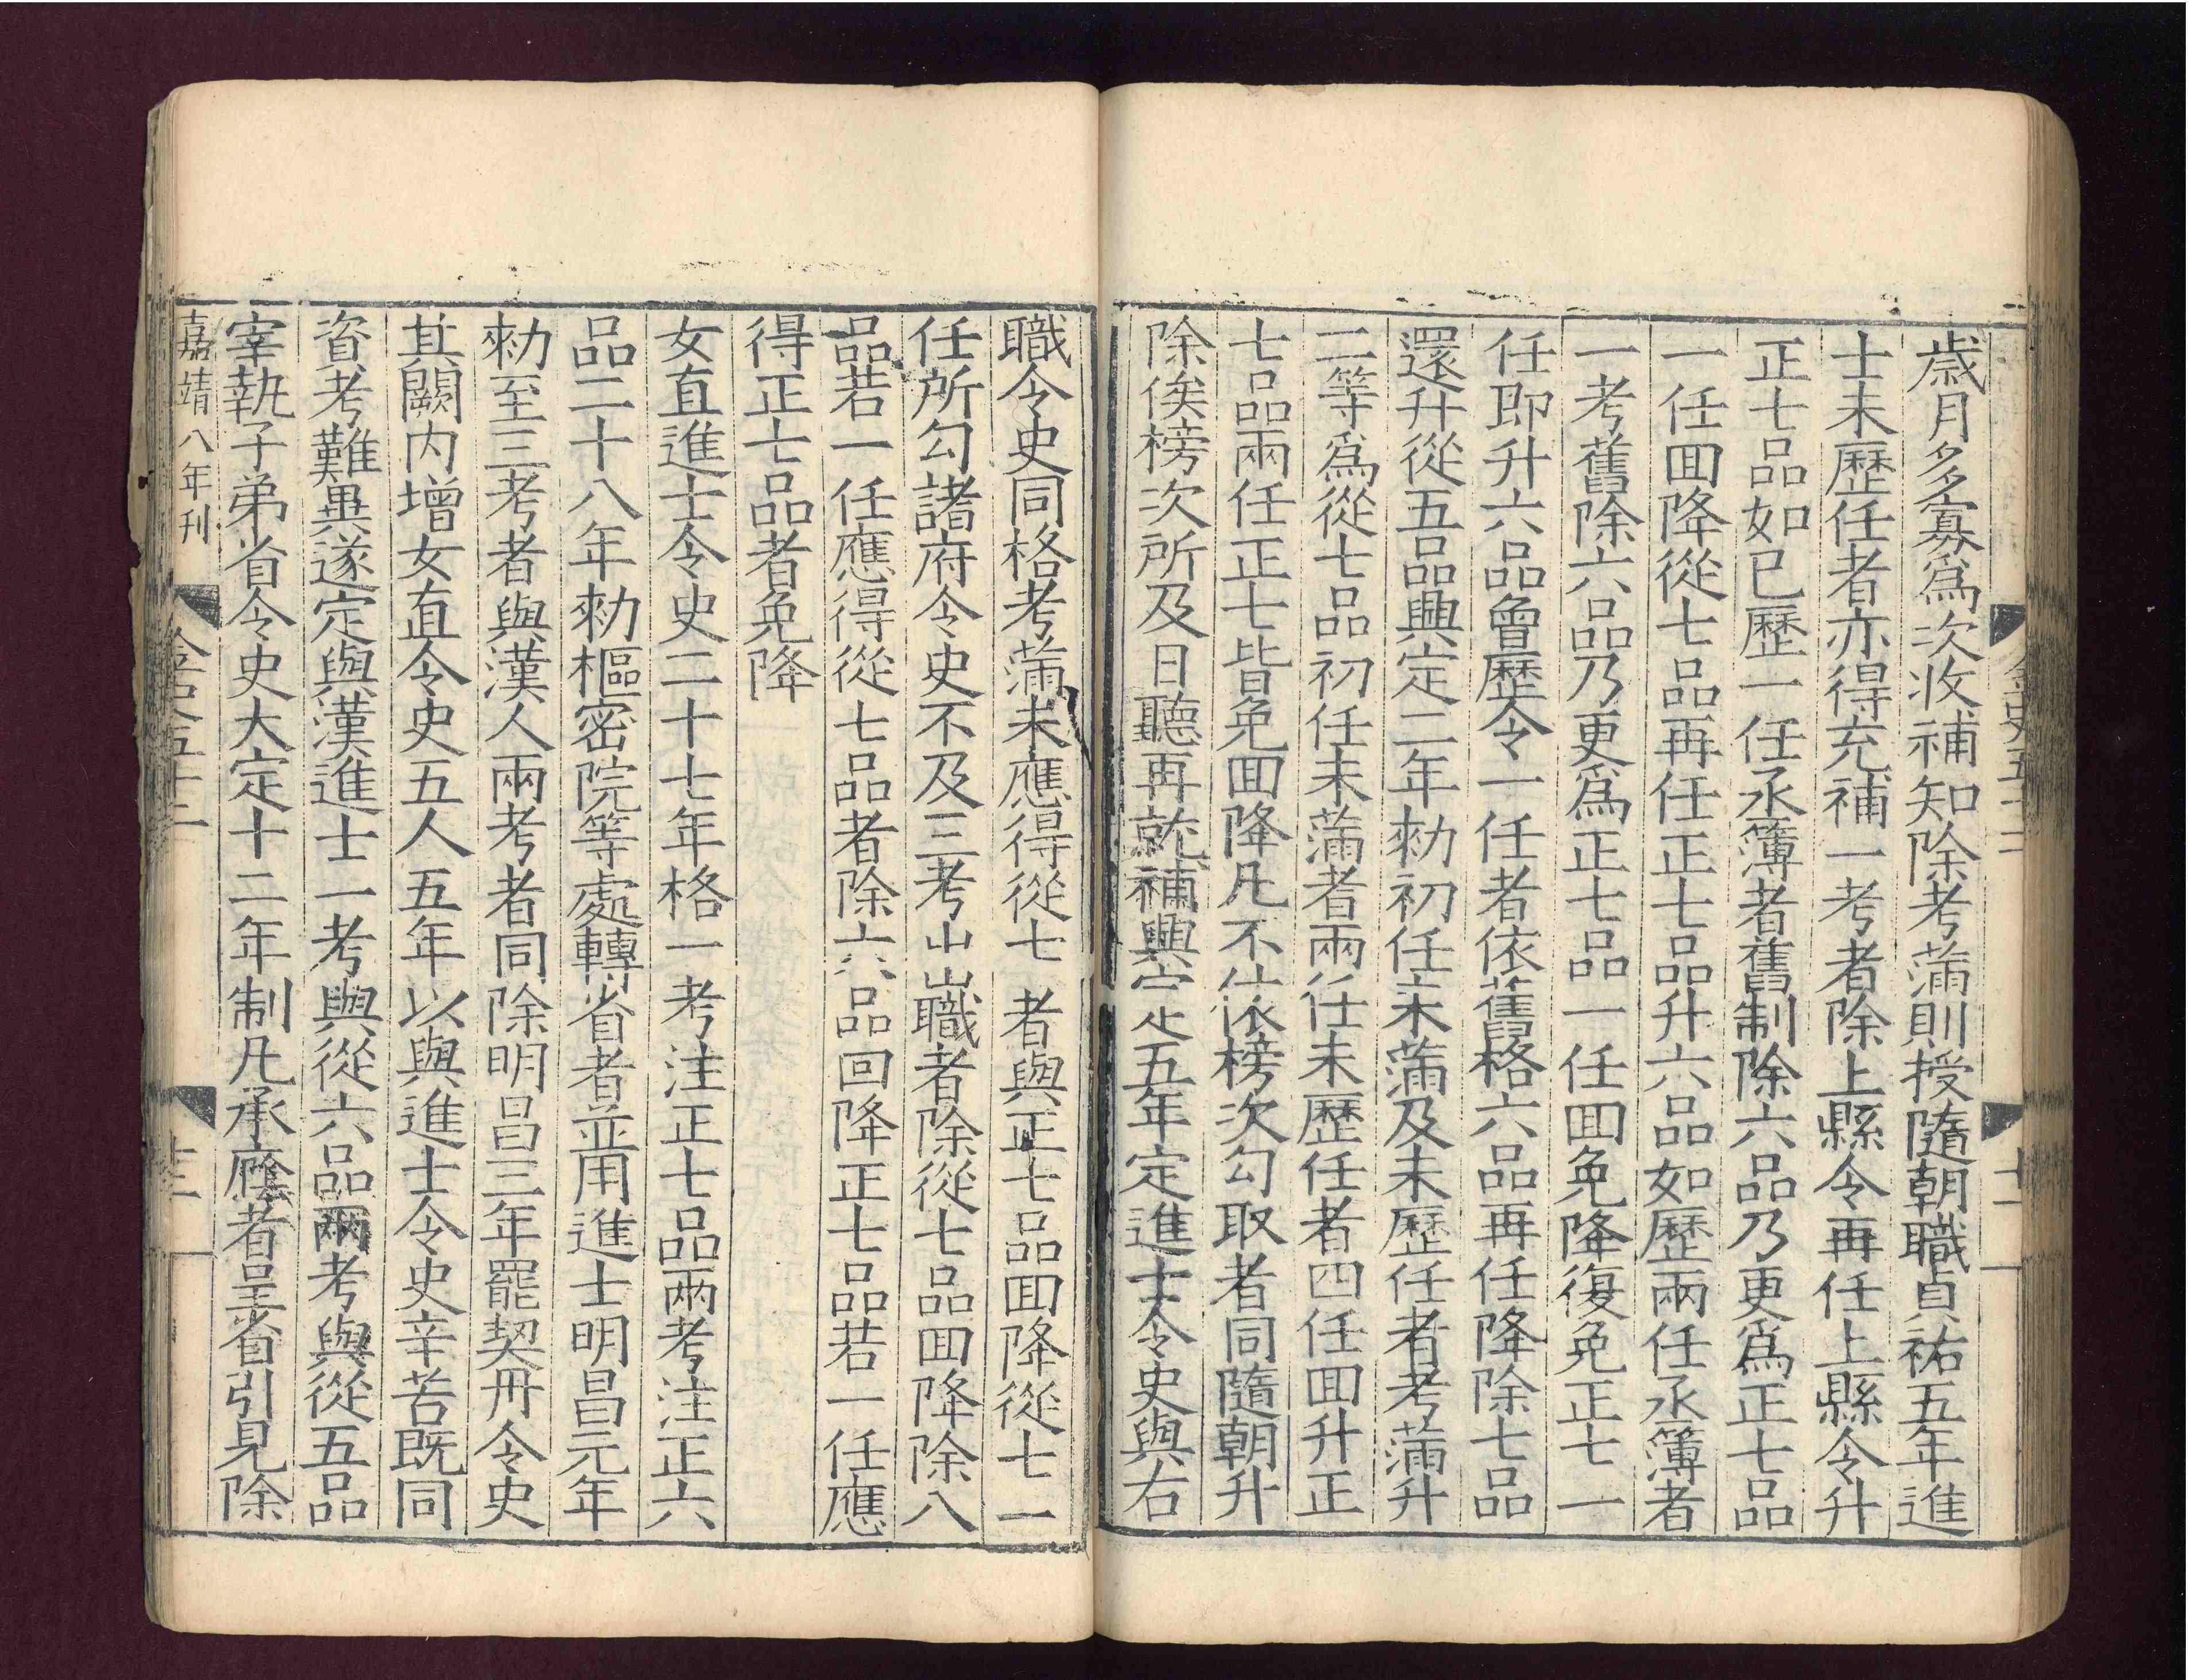 歲月多寡爲次收補知除考滿則授隨朝職貞祐五年進
士未歷任者亦得充補一考者除上縣令再任上縣令升
正七品如已歷一任丞簿者舊制除六品乃更爲正七品
一任回降從七品再任正七品升六品如歷兩任丞簿者
一考舊除六品乃更爲正七品一任回免降復免正七一
任即升六品曾歷令一任者依舊格六品再任降除七品
還升從五品興定二年勑初任未滿及未歷任者考滿升
二等爲從七品初任未滿者兩任未歷任者四任回升正
七品兩任正七皆免回降凡不依榜次勾取者同隨朝升
除俟榜次所及日聽再就補興定五年定進士令史與右
職令史同格考滿未應得從七者與正七品回降從七一
任所勾諸府令史不及三考出職者除從七品回降除八
品若一任應得從七品者除六品回降正七品若一任應
得正七品者免降
女直進士令史二十七年格一考注正七品兩考注正六
品二十八年勑樞密院等處轉省者並用進士明昌元年
勑至三考者與漢人兩考者同除明昌三年罷契丹令史
其闕内增女直令史五人五年以與進士令史辛苦既同
資考難異遂定與漢進士一考與從六品兩考與從五品
宰執子弟省令史大定十二年制凡承廕者呈省引見除
嘉靖八年刊
金史五十二
十二